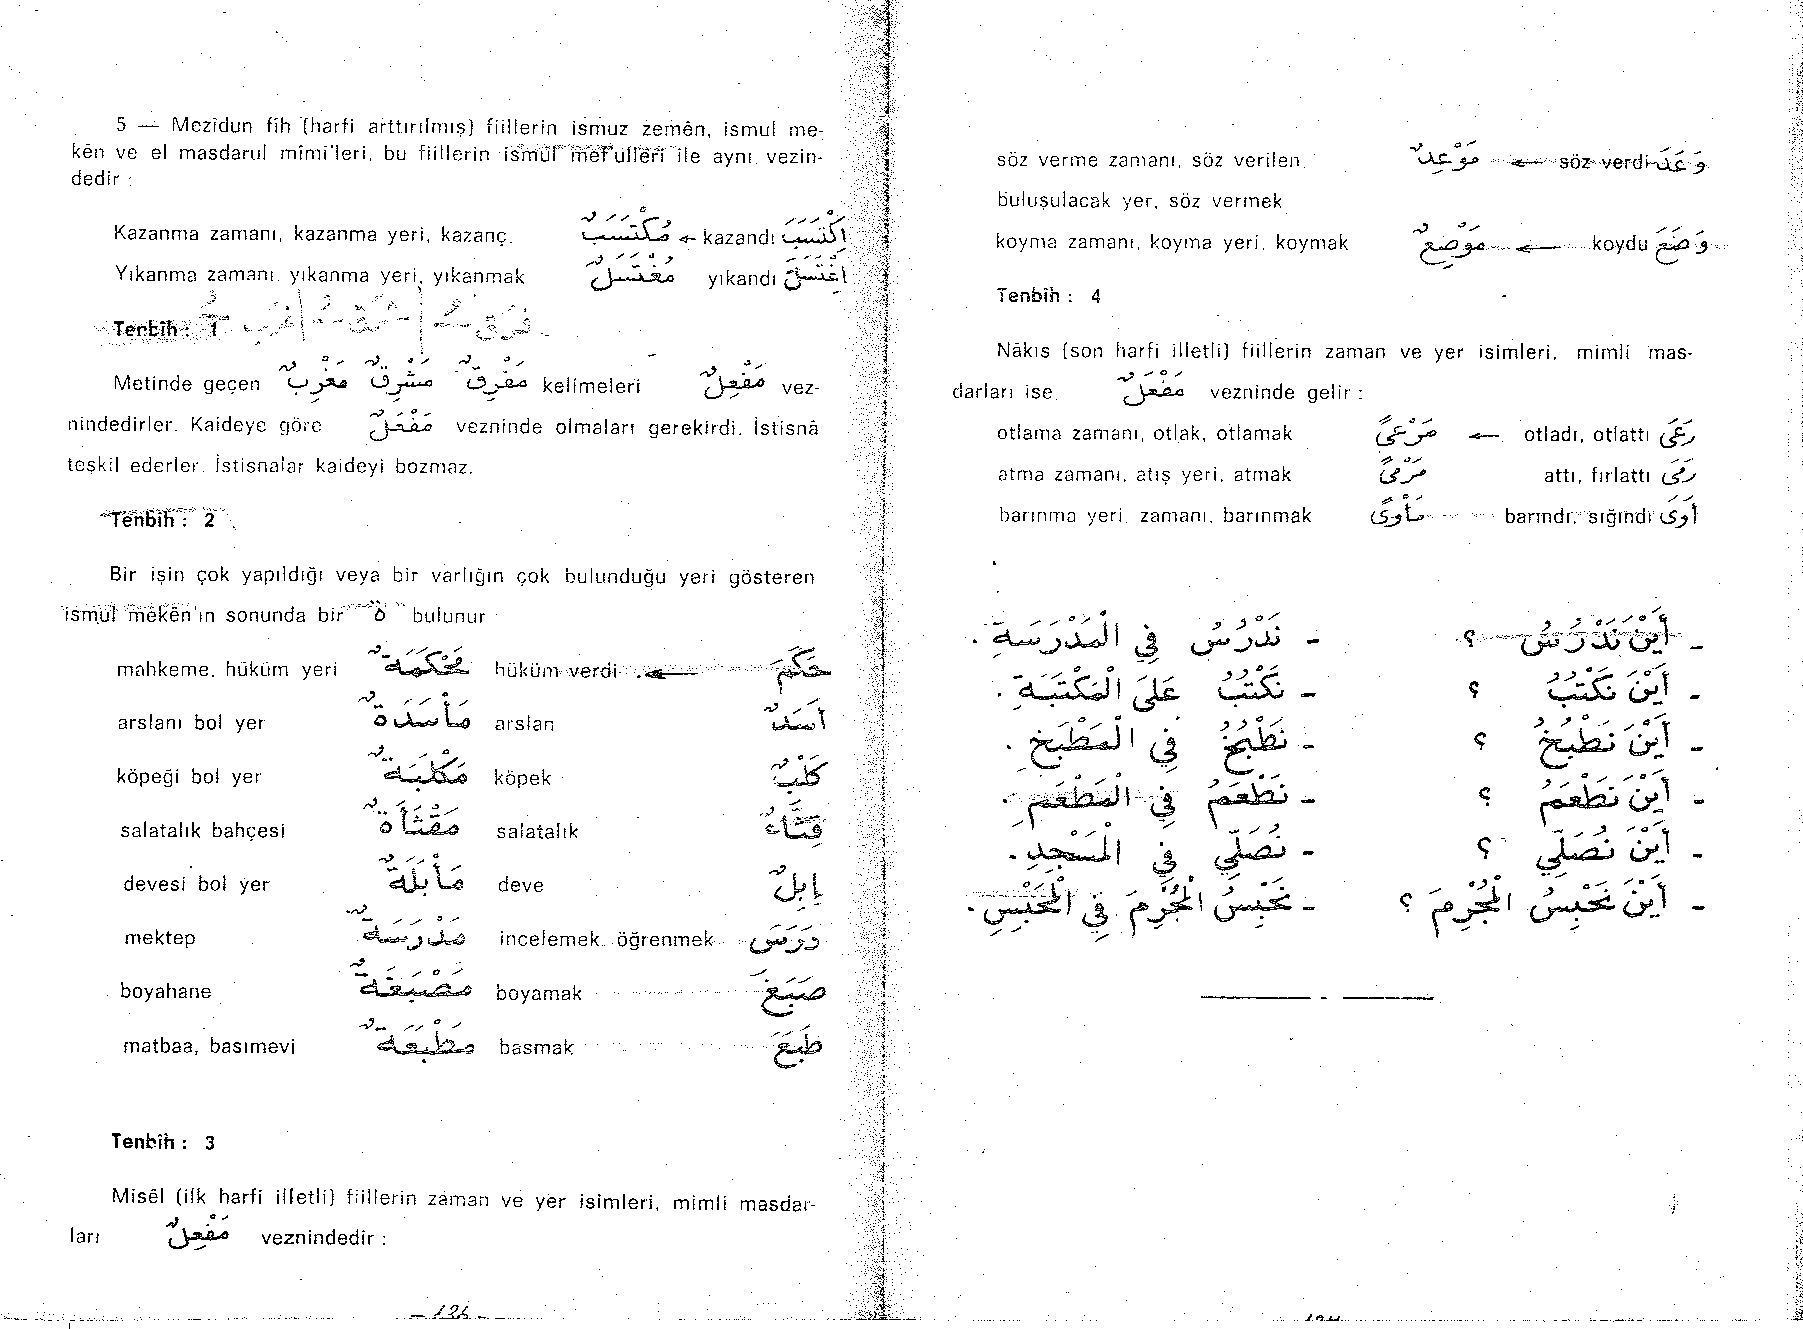 5 — Mezîdun fîh (harfi arttırılmış) fiillerin ismuz zemên, ismul me-
kên ve el masdarul mîmî'leri, bu fiillerin ismul mef'ulleri ile aynı vezin-
dedir :
Kazanma zamanı, kazanma yeri, kazanç. مُكْتَسَبٌ ← kazandı اِكْتَسَبَ
Yıkanma zamanı, yıkanma yeri, yıkanmak مُغْتَسَلٌ yıkandı اِغْتَسَلَ
Tenbîh : 1
Metinde geçen مَغْرِبٌ مَشْرِقٌ مَفْرِقٌ kelimeleri مَفْعِلٌ vez-
nindedirler. Kaideye göre مَفْعَلٌ vezninde olmaları gerekirdi. İstisnâ
teşkil ederler. İstisnalar kaideyi bozmaz.
Tenbîh : 2
Bir işin çok yapıldığı veya bir varlığın çok bulunduğu yeri gösteren
ismul mekên'ın sonunda bir "ة" bulunur
mahkeme, hüküm yeri مَحْكَمَةٌ hüküm verdi ← حَكَمَ
arslanı bol yer مَأْسَدَةٌ arslan أَسَدٌ
köpeği bol yer مَكْلَبَةٌ köpek كَلْبٌ
salatalık bahçesi مَقْثَأَةٌ salatalık قِثَّاءٌ
devesi bol yer مَأْبَلَةٌ deve إِبِلٌ
mektep مَدْرَسَةٌ incelemek, öğrenmek دَرَسَ
boyahane مَصْبَغَةٌ boyamak صَبَغَ
matbaa, basımevi مَطْبَعَةٌ basmak طَبَعَ
Tenbîh : 3
Misêl (ilk harfi illetli) fiillerin zaman ve yer isimleri, mimli masdar-
ları مَفْعِلٌ veznindedir :
— 126 —
söz verme zamanı, söz verilen مَوْعِدٌ ← söz verdi وَعَدَ
buluşulacak yer, söz vermek
koyma zamanı, koyma yeri, koymak مَوْضِعٌ ← koydu وَضَعَ
Tenbîh : 4
Nâkıs (son harfi illetli) fiillerin zaman ve yer isimleri, mimli mas-
darları ise مَفْعَلٌ vezninde gelir :
otlama zamanı, otlak, otlamak مَرْعًى ← otladı, otlattı رَعَى
atma zamanı, atış yeri, atmak مَرْمًى attı, fırlattı رَمَى
barınma yeri, zamanı, barınmak مَأْوًى barındı, sığındı أَوَى
- أَيْنَ نَدْرُسُ ؟ - نَدْرُسُ فِي الْمَدْرَسَةِ .
- أَيْنَ نَكْتُبُ ؟ - نَكْتُبُ عَلَى الْمَكْتَبَةِ .
- أَيْنَ نَطْبُخُ ؟ - نَطْبُخُ فِي الْمَطْبَخِ .
- أَيْنَ نَطْعَمُ ؟ - نَطْعَمُ فِي الْمَطْعَمِ .
- أَيْنَ نُصَلِّي ؟ - نُصَلِّي فِي الْمَسْجِدِ .
- أَيْنَ نَحْبِسُ الْمُجْرِمَ ؟ - نَحْبِسُ الْمُجْرِمَ فِي الْمَحْبِسِ .